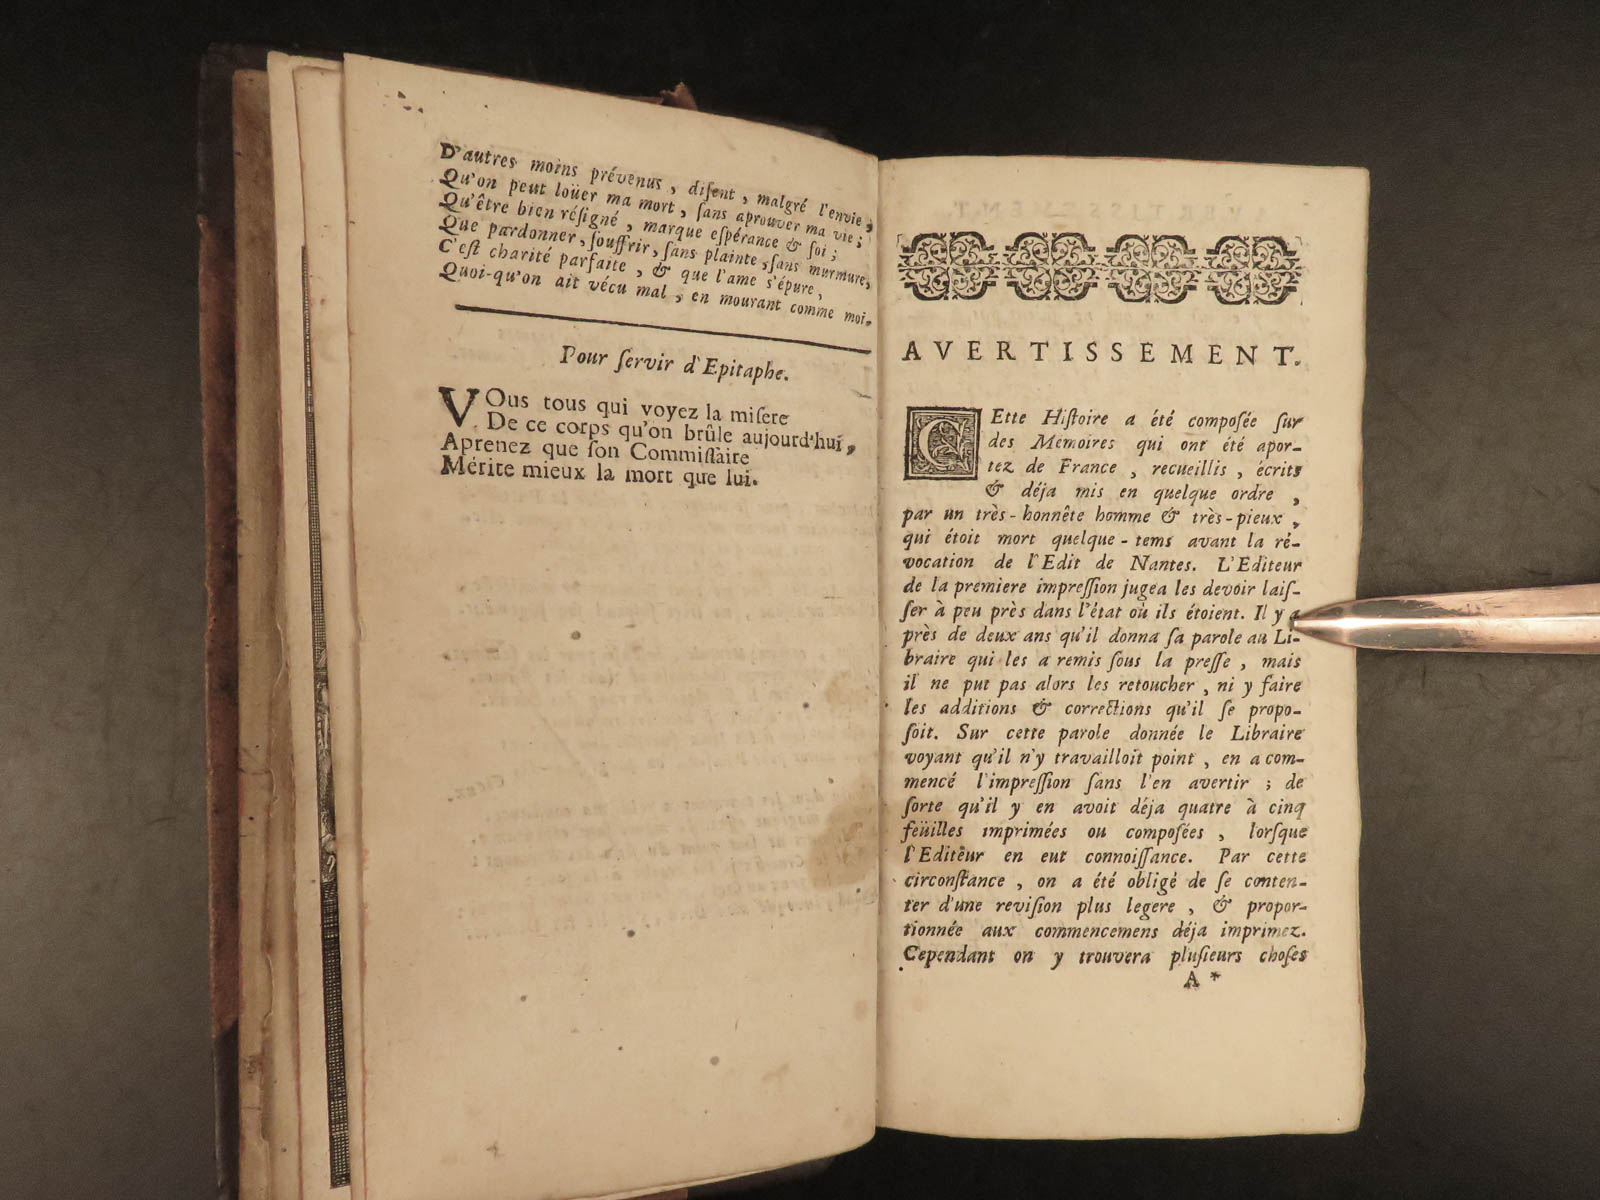 D'autres moins prévenus, disent, malgré l'envie,
Qu'on peut loüer ma mort, sans aprouver ma vie;
Qu'être bien résigné, marque espérance & foi;
Que pardonner, souffrir, sans plainte, sans murmure,
C'est charité parfaite, & que l'ame s'épure,
Quoi-qu'on ait vécu mal, en mourant comme moi.
Pour servir d'Epitaphe.
VOus tous qui voyez la misere
De ce corps qu'on brûle aujourd'hui,
Aprenez que son Commissaire
Mérite mieux la mort que lui.
AVERTISSEMENT.
CEtte Histoire a été composée sur
des Memoires qui ont été apor-
tez de France, recueillis, écrits
& déja mis en quelque ordre,
par un très-honnête homme & très-pieux,
qui étoit mort quelque-tems avant la ré-
vocation de l'Edit de Nantes. L'Editeur
de la premiere impression jugea les devoir lais-
ser à peu près dans l'état où ils étoient. Il y a
près de deux ans qu'il donna sa parole au Li-
braire qui les a remis sous la presse, mais
il ne put pas alors les retoucher, ni y faire
les additions & corrections qu'il se propo-
soit. Sur cette parole donnée le Libraire
voyant qu'il n'y travailloit point, en a com-
mencé l'impression sans l'en avertir; de
sorte qu'il y en avoit déja quatre à cinq
feüilles imprimées ou composées, lorsque
l'Editeur en eut connoissance. Par cette
circonstance, on a été obligé de se conten-
ter d'une revision plus legere, & propor-
tionnée aux commencemens déja imprimez.
Cependant on y trouvera plusieurs choses
A *